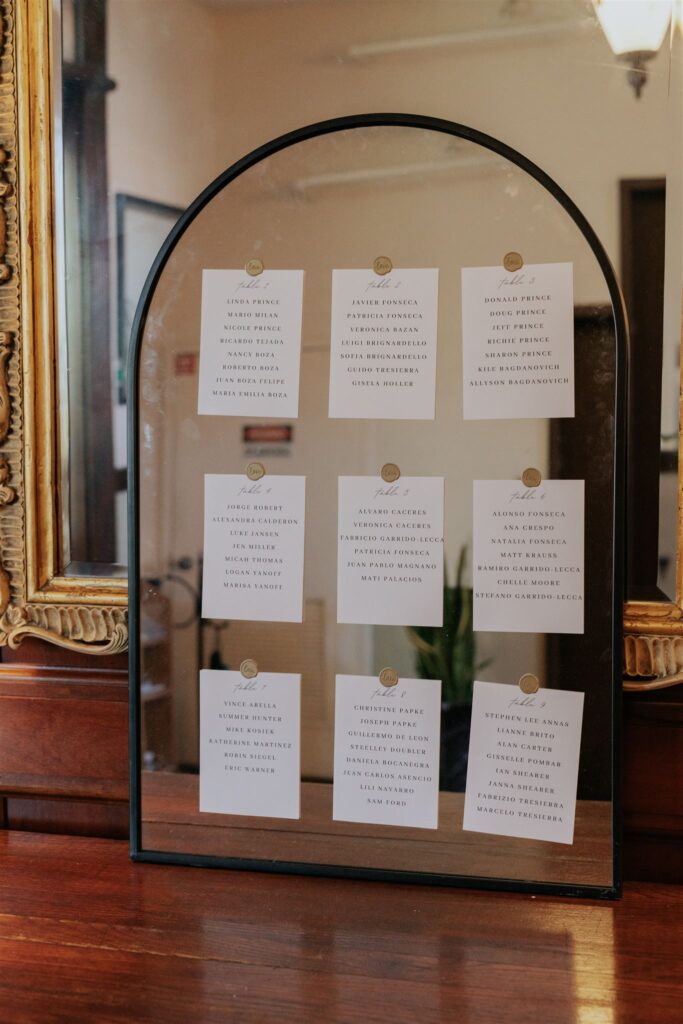 love
table 1
LINDA PRINCE
MARIO MILAN
NICOLE PRINCE
RICARDO TEJADA
NANCY BOZA
ROBERTO BOZA
JUAN BOZA FELIPE
MARIA EMILIA BOZA
love
table 2
JAVIER FONSECA
PATRICIA FONSECA
VERONICA BAZAN
LUIGI BRIGNARDELLO
SOFIA BRIGNARDELLO
GUIDO TRESIERRA
GISELA HOLLER
love
table 3
DONALD PRINCE
DOUG PRINCE
JEFF PRINCE
RICHIE PRINCE
SHARON PRINCE
KILE BAGDANOVICH
ALLYSON BAGDANOVICH
love
table 4
JORGE ROBERT
ALEXANDRA CALDERON
LUKE JANSEN
JEN MILLER
MICAH THOMAS
LOGAN YANOFF
MARISA YANOFF
love
table 5
ALVARO CACERES
VERONICA CACERES
FABRICIO GARRIDO-LECCA
PATRICIA FONSECA
JUAN PABLO MAGNANO
MATI PALACIOS
love
table 6
ALONSO FONSECA
ANA CRESPO
NATALIA FONSECA
MATT KRAUSS
RAMIRO GARRIDO-LECCA
CHELLE MOORE
STEFANO GARRIDO-LECCA
love
table 7
VINCE ABELLA
SUMMER HUNTER
MIKE KOSIEK
KATHERINE MARTINEZ
ROBIN SIEGEL
ERIC WARNER
love
table 8
CHRISTINE PAPKE
JOSEPH PAPKE
GUILLERMO DE LEON
STEELLEY DOUBLER
DANIELA BOCANEGRA
JEAN CARLOS ASENCIO
LILI NAVARRO
SAM FORD
love
table 9
STEPHEN LEE ANNAS
LIANNE BRITO
ALAN CARTER
GISSELLE POMBAR
IAN SHEARER
JANNA SHEARER
FABRIZIO TRESIERRA
MARCELO TRESIERRA